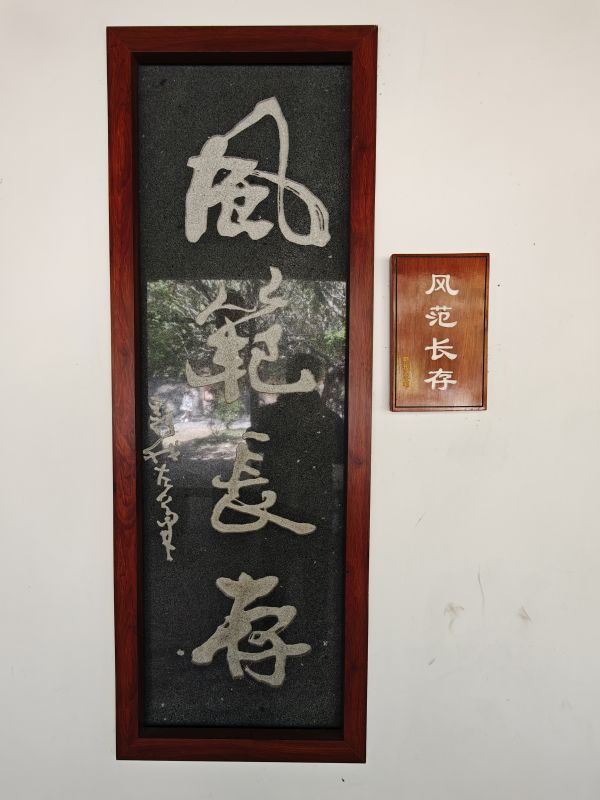 風範長存
风范长存